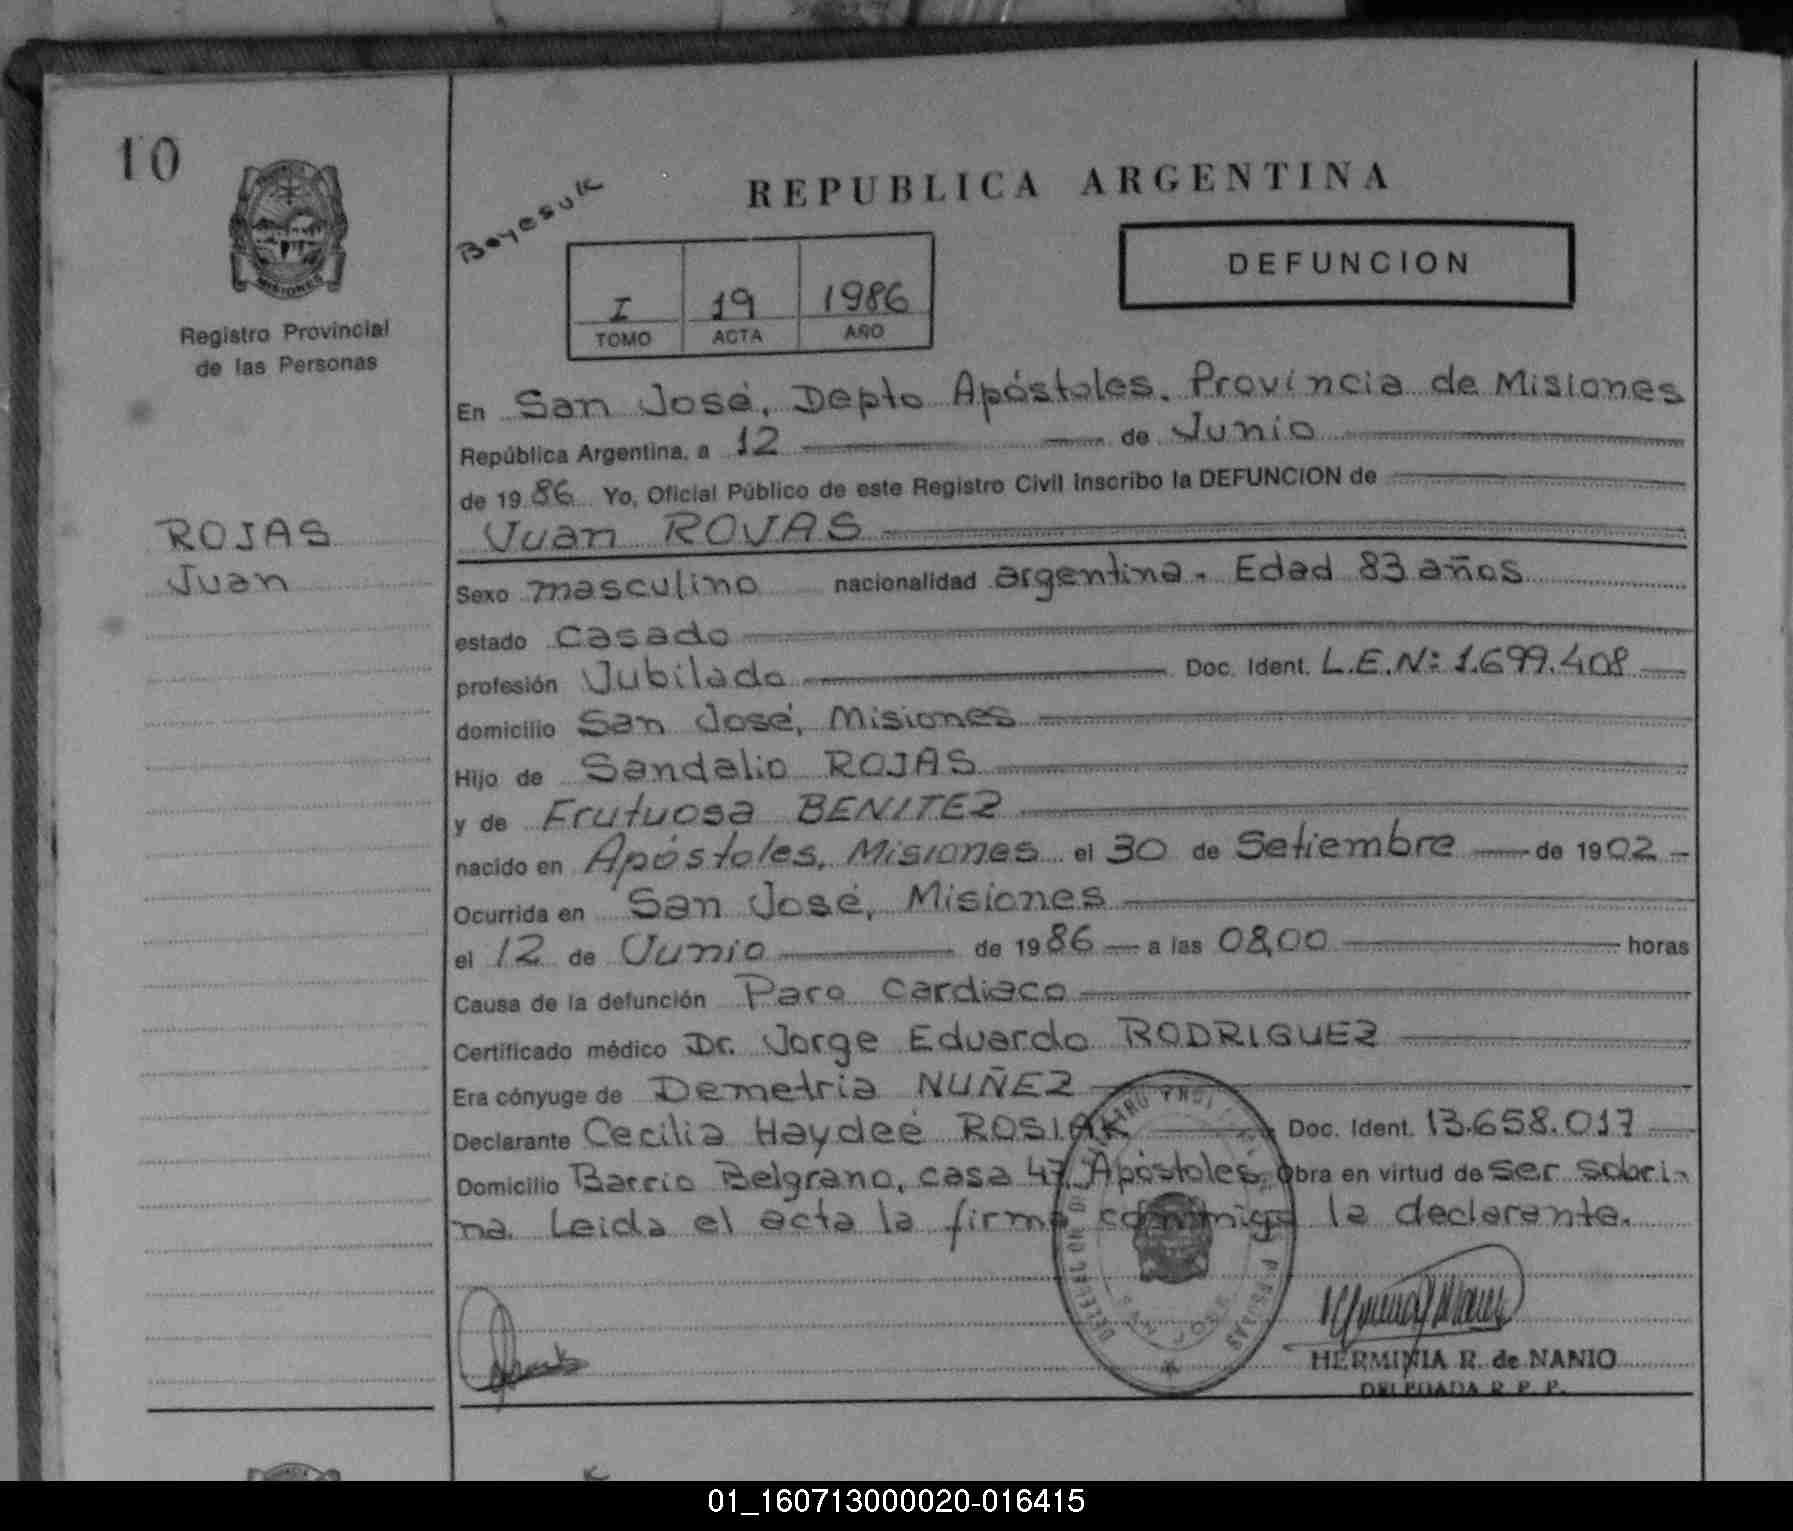 10
MISIONES
Registro Provincial
de las Personas
ROJAS
Juan
Boyesuk
REPUBLICA ARGENTINA
DEFUNCION
I 19 1986
TOMO ACTA AÑO
En San José, Depto Apóstoles. Provincia de Misiones
República Argentina, a 12 de Junio
de 1986 Yo, Oficial Público de este Registro Civil inscribo la DEFUNCION de
Juan ROJAS
Sexo masculino nacionalidad argentina. Edad 83 años
estado Casado
profesión Jubilado Doc. Ident. L.E.Nº: 1.699.408
domicilio San José, Misiones
Hijo de Sandalio ROJAS
y de Frutuosa BENITEZ
nacido en Apóstoles, Misiones el 30 de Setiembre de 1902
Ocurrida en San José, Misiones
el 12 de Junio de 1986 a las 08,00 horas
Causa de la defunción Paro Cardiaco
Certificado médico Dr. Jorge Eduardo RODRIGUEZ
Era cónyuge de Demetria NUÑEZ
Declarante Cecilia Haydeé ROSIAK Doc. Ident. 13.658.017
Domicilio Barrio Belgrano, casa 47, Apóstoles, Obra en virtud de ser sobri-
na. Leida el acta la firma conmigo la declarante.
HERMINIA R. de NANIO
DELEGADA R. P. P.
01_160713000020-016415